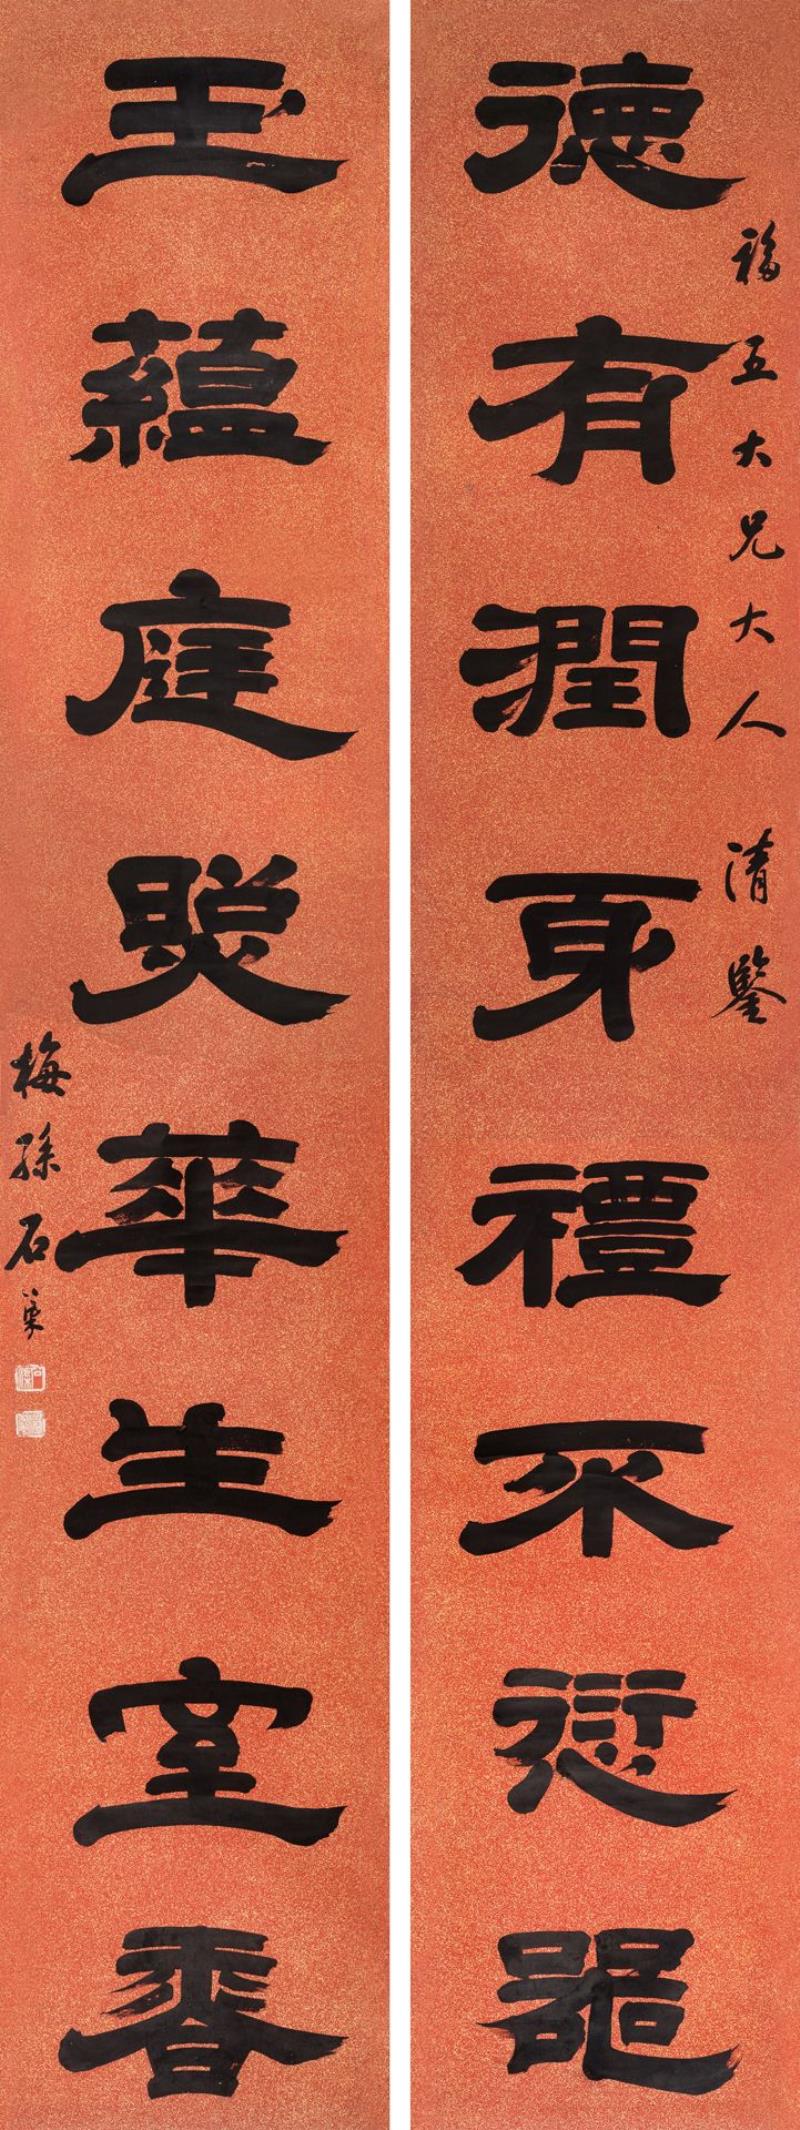 德有潤身禮不愆器
福五大兄大人 清鑒
玉蘊庭照華生室香
梅孫石渠